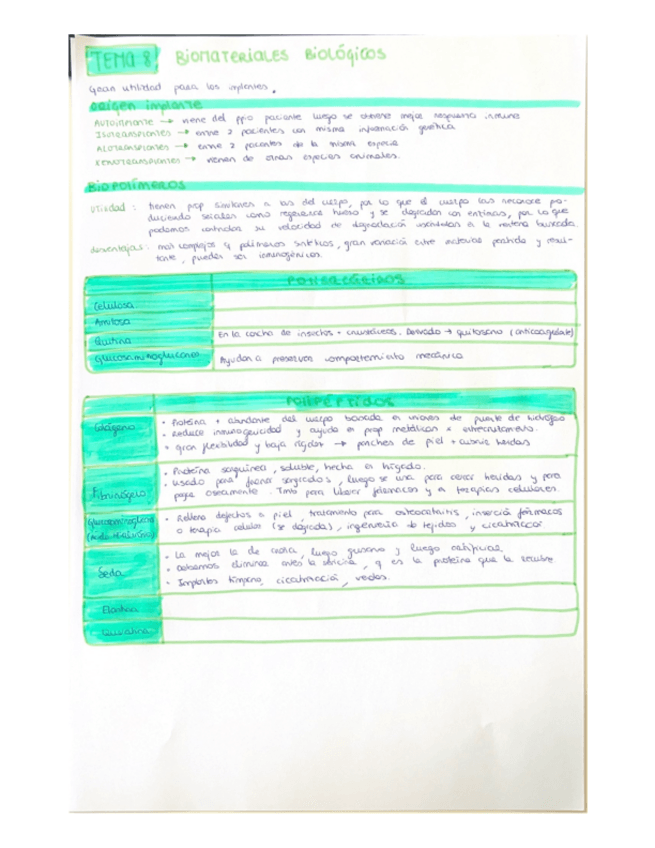 TEMA 8 BIOMATERIALES BIOLÓGICOS
Gran utilidad para los implantes.
ORIGEN IMPLANTE
AUTOIMPLANTE → viene del ppio paciente luego se obtiene mejor respuesta inmune
ISOTRANSPLANTES → entre 2 pacientes con misma información genética
ALOTRANSPLANTES → entre 2 pacientes de la misma especie
XENOTRANSPLANTES → vienen de otras especies animales.
BIOPOLÍMEROS
utilidad : tienen prop similares a las del cuerpo, por lo que el cuerpo las reconoce pro-
duciendo señales como regenerar hueso y se degradan con enzimas, por lo que
podemos controlar su velocidad de degradación
desventajas : mas complejos q polimeros sintéticos, gran variación entre
tante, pueden ser inmunogénicos.
POLISACÁRIDOS
Celulosa
Amilosa
Quitina
En la concha de insectos + crustáceos. Derivado → quitosano (anticoagulante)
Glucosaminoglucanos
Ayudan a preservar comportamiento mecánico
POLIPÉPTIDOS
Colágeno
• Proteína + abundante del cuerpo basada en uniones de puente de hidrógeno
• Reduce inmunogenicidad y ayuda en prop metálicas x entrecruzamiento.
• gran flexibilidad y baja rigidez → parches de piel + cubrir heridas
Fibrinógeno
• Proteína sanguínea, soluble, hecha en hígado.
• Usado para frenar sangrados, luego se usa para cerrar heridas y para
pegar oseamente. Tmb para liberar fármacos y en terapias celulares
Glucosaminoglucano
(ácido Hialurónico)
• Relleno defectos en piel, tratamiento para osteoartritis, inserción fármacos
o terapia celular (se degrada), ingeniería de tejidos y cicatrizar
Seda
• La mejor la de araña, luego gusano y luego
• Debemos eliminar antes la sericina, q es la proteína que la recubre
• Implantes tímpano, cicatrización, vasos.
Elastina
Queratina